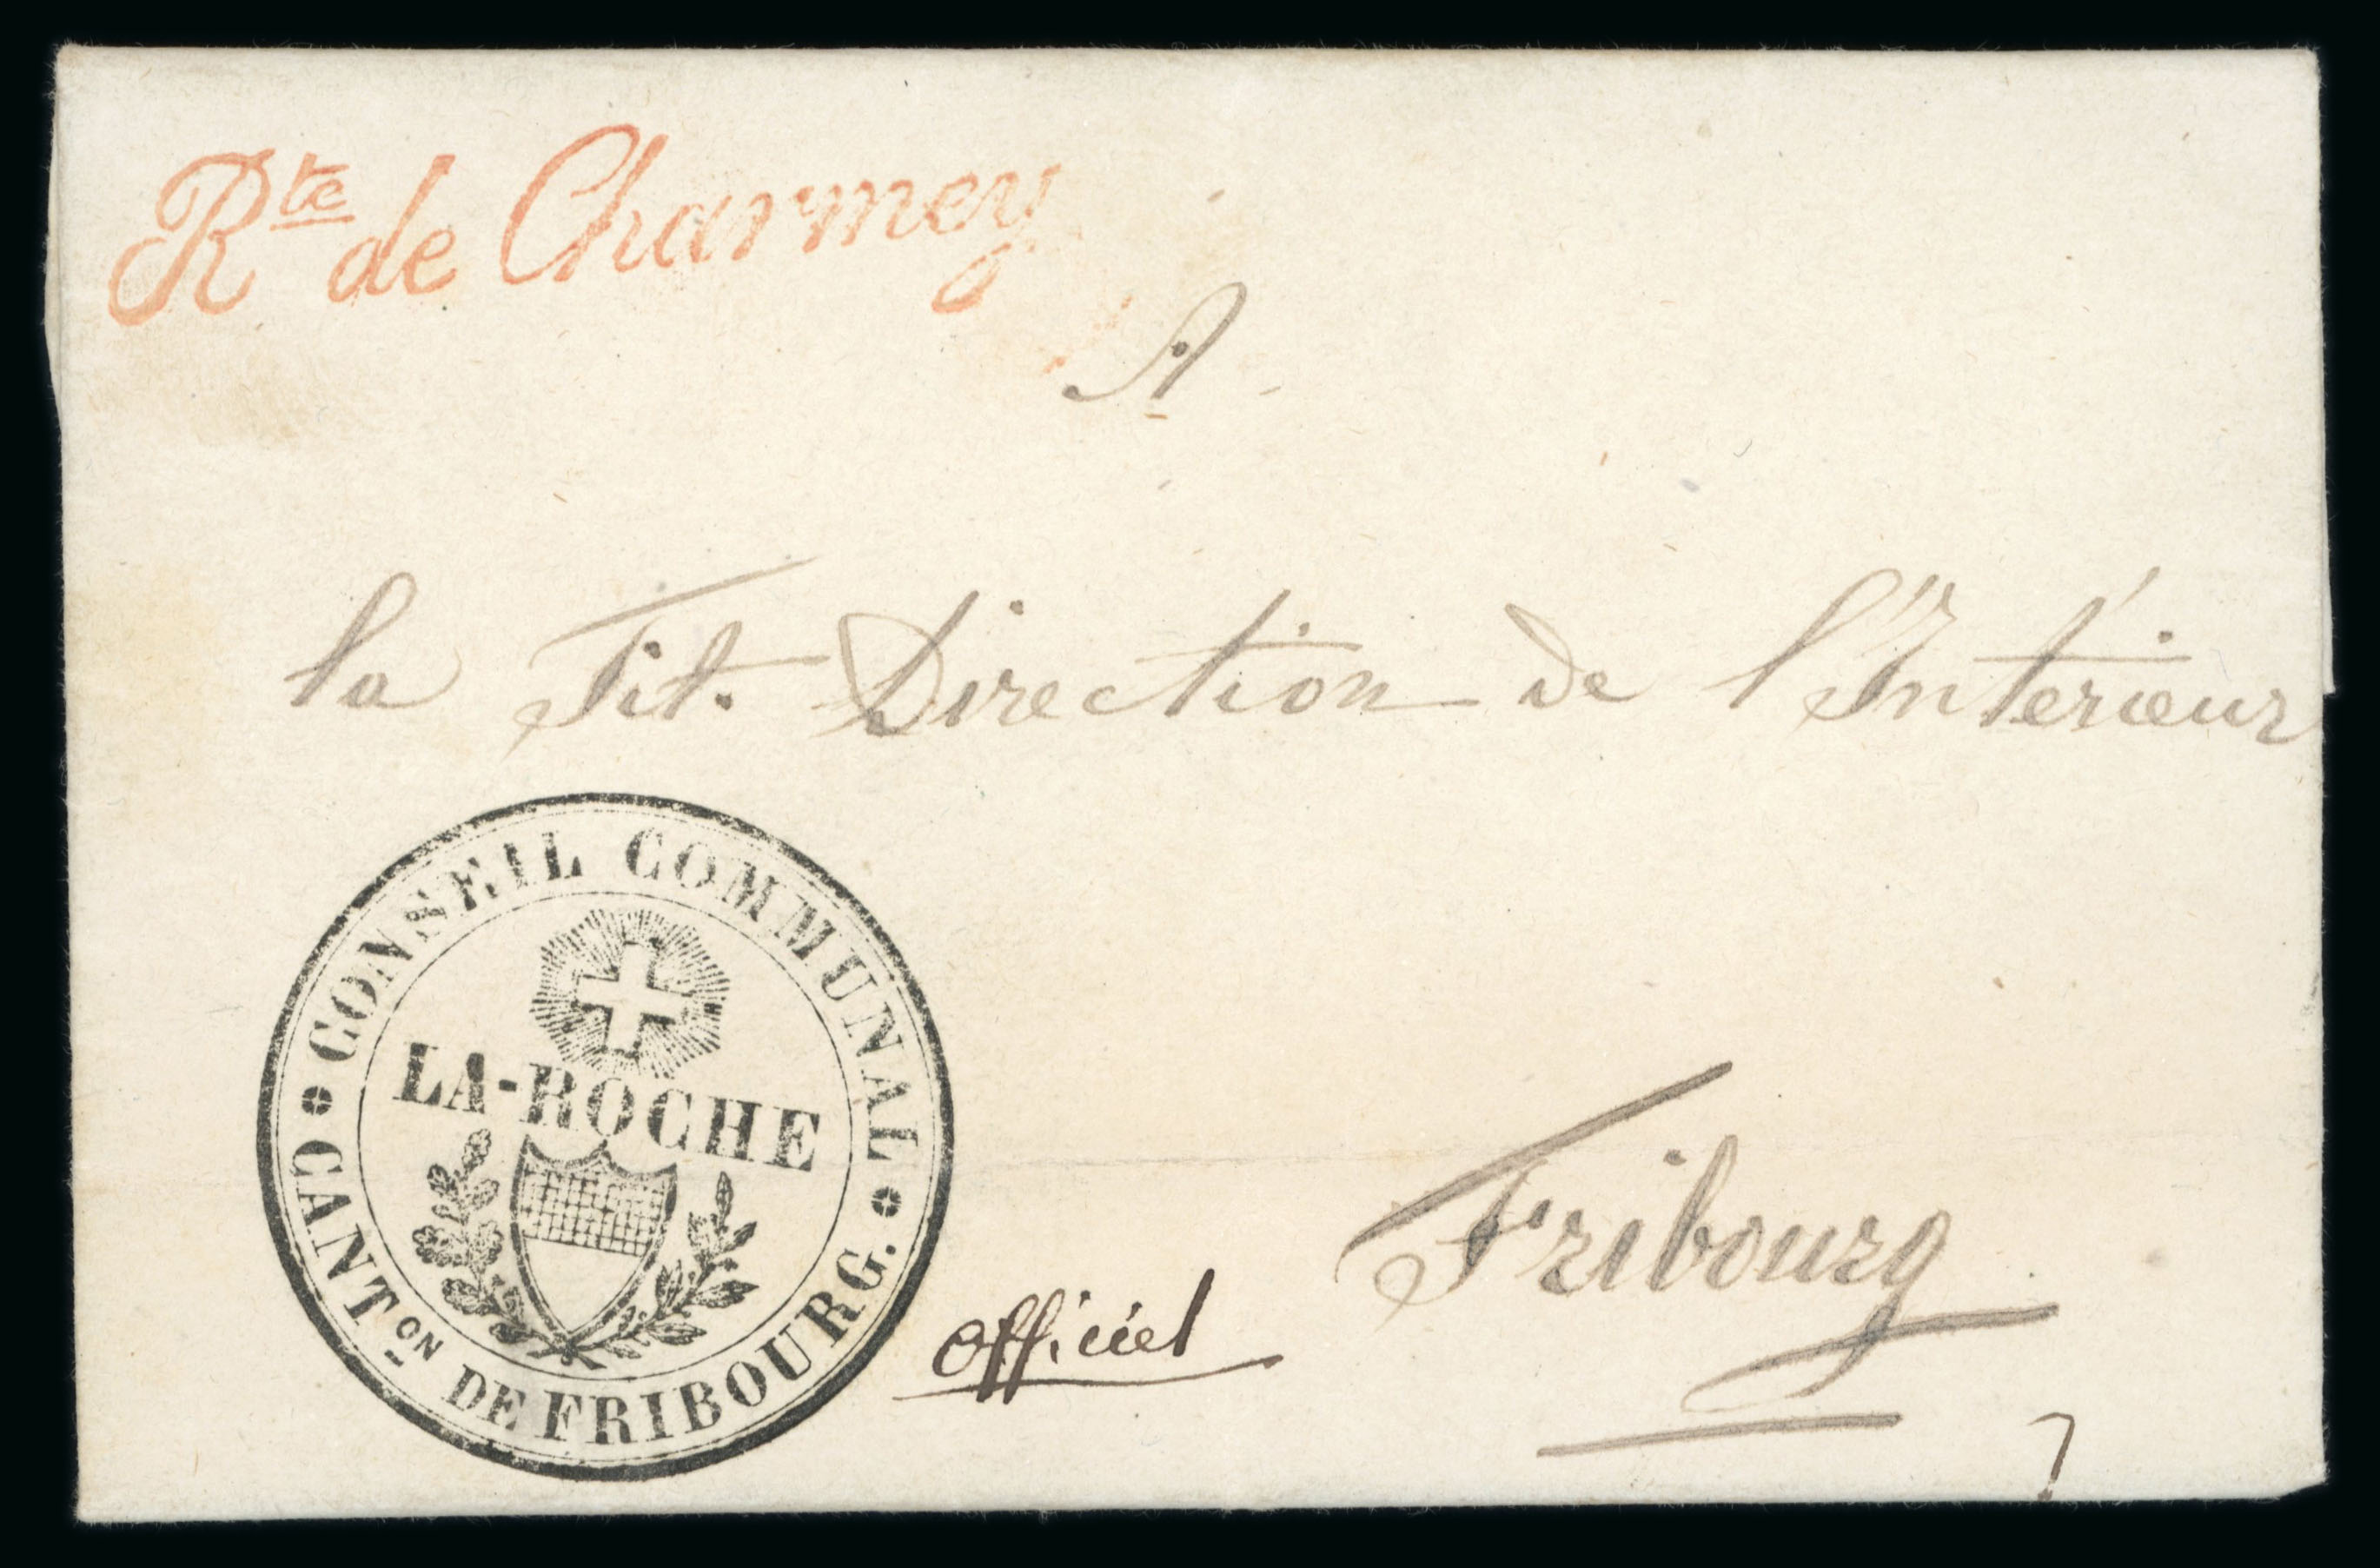 Rte de Charmey
A
la Tit. Direction de l'Intérieur
CONSEIL COMMUNAL
LA-ROCHE
CANTON DE FRIBOURG.
Officiel
Fribourg
7